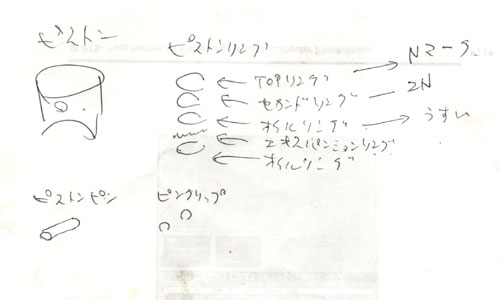 ピストン
ピストンリング
TOPリング → Nマーク
セカンドリング — 2N
オイルリング → うすい
エキスパンションリング
オイルリング
ピストンピン
ピンクリップ